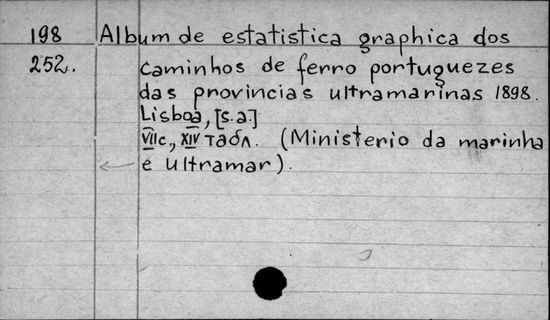 198 Album de estatistica graphica dos
252. caminhos de ferro portuguezes
das provincias ultramarinas 1898.
Lisboa, [s.a.]
VII c, XIV табл. (Ministerio da marinha
e ultramar).